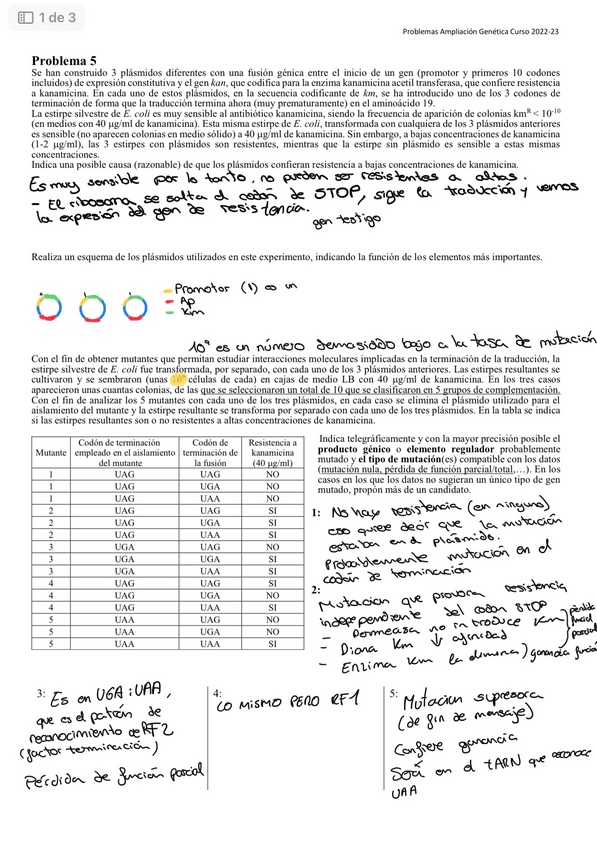 1 de 3
Problemas Ampliación Genética Curso 2022-23
Problema 5
Se han construido 3 plásmidos diferentes con una fusión génica entre el inicio de un gen (promotor y primeros 10 codones
incluidos) de expresión constitutiva y el gen kan, que codifica para la enzima kanamicina acetil transferasa, que confiere resistencia
a kanamicina. En cada uno de estos plásmidos, en la secuencia codificante de km, se ha introducido uno de los 3 codones de
terminación de forma que la traducción termina ahora (muy prematuramente) en el aminoácido 19.
La estirpe silvestre de E. coli es muy sensible al antibiótico kanamicina, siendo la frecuencia de aparición de colonias kmR < 10-10
(en medios con 40 µg/ml de kanamicina). Esta misma estirpe de E. coli, transformada con cualquiera de los 3 plásmidos anteriores
es sensible (no aparecen colonias en medio sólido) a 40 µg/ml de kanamicina. Sin embargo, a bajas concentraciones de kanamicina
(1-2 µg/ml), las 3 estirpes con plásmidos son resistentes, mientras que la estirpe sin plásmido es sensible a estas mismas
concentraciones.
Indica una posible causa (razonable) de que los plásmidos confieran resistencia a bajas concentraciones de kanamicina.
Es muy sensible por lo tanto, no pueden ser resistentes a altas.
- El ribosoma se salta el codón de STOP, sigue la traducción y vemos
la expresión del gen de resistencia.
gen testigo
Realiza un esquema de los plásmidos utilizados en este experimento, indicando la función de los elementos más importantes.
- Promotor (1) es un
- Ap
- Km
10⁹ es un número demasiado bajo a la tasa de mutación
Con el fin de obtener mutantes que permitan estudiar interacciones moleculares implicadas en la terminación de la traducción, la
estirpe silvestre de E. coli fue transformada, por separado, con cada uno de los 3 plásmidos anteriores. Las estirpes resultantes se
cultivaron y se sembraron (unas 10⁹ células de cada) en cajas de medio LB con 40 µg/ml de kanamicina. En los tres casos
aparecieron unas cuantas colonias, de las que se seleccionaron un total de 10 que se clasificaron en 5 grupos de complementación.
Con el fin de analizar los 5 mutantes con cada uno de los tres plásmidos, en cada caso se elimina el plásmido utilizado para el
aislamiento del mutante y la estirpe resultante se transforma por separado con cada uno de los tres plásmidos. En la tabla se indica
si las estirpes resultantes son o no resistentes a altas concentraciones de kanamicina.
Mutante Codón de terminación empleado en el aislamiento del mutante Codón de terminación de la fusión Resistencia a kanamicina (40 µg/ml)
1 UAG UAG NO
1 UAG UGA NO
1 UAG UAA NO
2 UAG UAG SI
2 UAG UGA SI
2 UAG UAA SI
3 UGA UAG NO
3 UGA UGA SI
3 UGA UAA SI
4 UAG UAG SI
4 UAG UGA NO
4 UAG UAA SI
5 UAA UAG NO
5 UAA UGA NO
5 UAA UAA SI
Indica telegráficamente y con la mayor precisión posible el
producto génico o elemento regulador probablemente
mutado y el tipo de mutación(es) compatible con los datos
(mutación nula, pérdida de función parcial/total,…). En los
casos en los que los datos no sugieran un único tipo de gen
mutado, propón más de un candidato.
1: No hay resistencia (en ninguno)
eso quiere decir que la mutación
estaba en el plásmido.
Probablemente mutación en el
codón de terminación
2:
Mutación que provoca resistencia
independiente del codon STOP
- Permeasa no introduce Km
- Diana Km ↓ afinidad
- Enzima Km la elimina) ganancia función
pérdida
parcial
3: Es en UGA i UAA,
que es el patrón de
reconocimiento de RF2
(factor terminación)
Pérdida de función parcial
4:
LO MISMO PERO RF1
5: Mutación supresora
(de fin de mensaje)
Confiere ganancia
Será en el tARN que reconoce
UAA